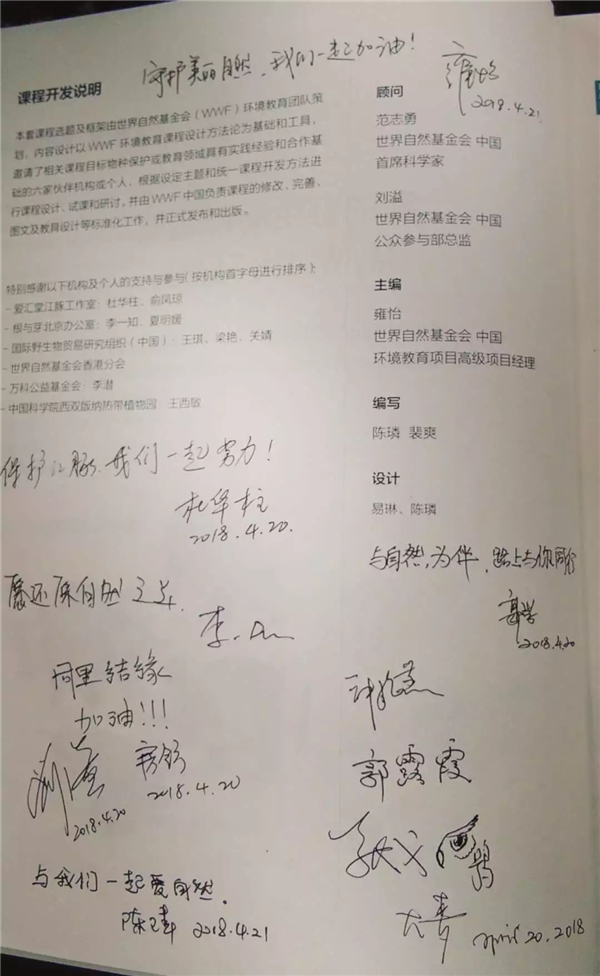 守护美丽自然，我们一起加油！
2018.4.21
课程开发说明
本套课程选题及框架由世界自然基金会（WWF）环境教育团队策
划，内容设计以WWF环境教育课程设计方法论为基础和工具，
邀请了相关课程目标物种保护或教育领域具有实践经验和合作基
础的六家伙伴机构或个人，根据设定主题和统一课程开发方法进
行课程设计、试课和研讨，并由WWF中国负责课程的修改、完善、
图文及教育设计等标准化工作，并正式发布和出版。
特别感谢以下机构及个人的支持与参与（按机构首字母进行排序）：
- 爱汇堂江豚工作室：杜华柱、俞凤琼
- 根与芽北京办公室：李一知、夏明媛
- 国际野生物贸易研究组织（中国）：王琪、梁艳、关婧
- 世界自然基金会香港分会
- 万科公益基金会：李潜
- 中国科学院西双版纳热带植物园 王西敏
顾问
范志勇
世界自然基金会 中国
首席科学家
刘溢
世界自然基金会 中国
公众参与部总监
主编
雍怡
世界自然基金会 中国
环境教育项目高级项目经理
编写
陈璘 裴爽
设计
易琳、陈璘
保护江豚，我们一起努力！
杜华柱
2018.4.20.
愿还原自然之美，
李
同里结缘
加油！！！
2018.4.20
2018.4.20
与我们一起爱自然。
2018.4.21
与自然为伴，路上与你同行
2018.4.20
郭露霞
大青
April 20, 2018